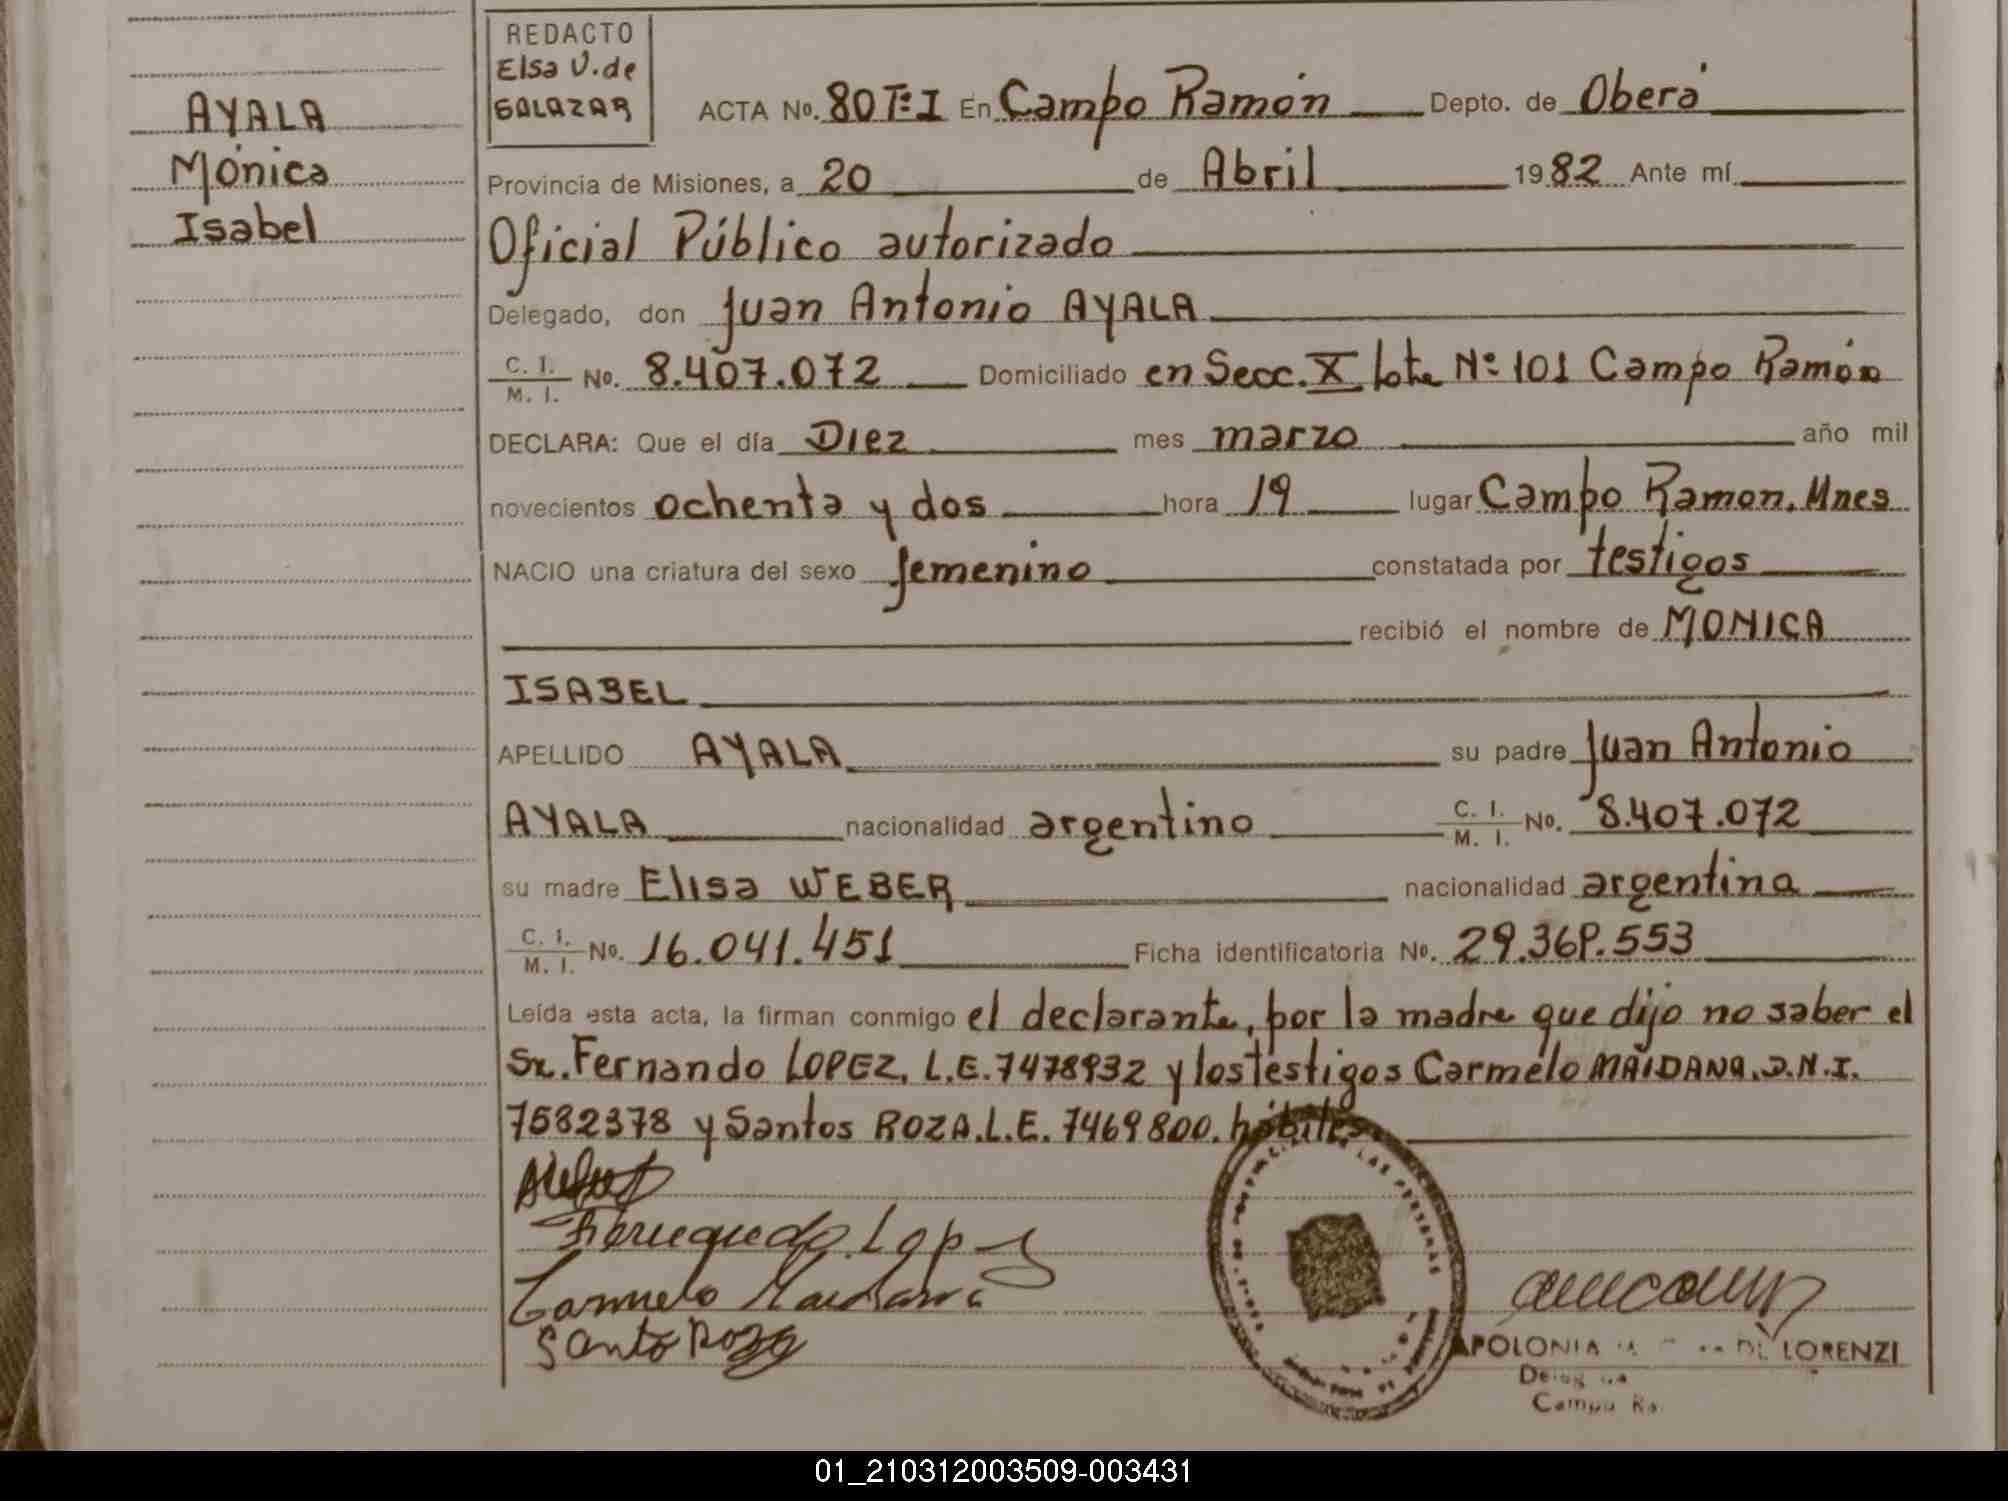 AYALA
Mónica
Isabel
REDACTO
Elsa V. de
SALAZAR
ACTA No. 80 Tº I En Campo Ramón Depto. de Oberá
Provincia de Misiones, a 20 de Abril 1982 Ante mí
Oficial Público autorizado
Delegado, don Juan Antonio AYALA
C. I. / M. I. No. 8.407.072 Domiciliado en Secc. X lote Nº 101 Campo Ramón
DECLARA: Que el día Diez mes marzo año mil
novecientos ochenta y dos hora 19 lugar Campo Ramon, Mnes
NACIO una criatura del sexo femenino constatada por testigos
recibió el nombre de MONICA
ISABEL
APELLIDO AYALA su padre Juan Antonio
AYALA nacionalidad argentino C. I. / M. I. No. 8.407.072
su madre Elisa WEBER nacionalidad argentina
C. I. / M. I. No. 16.041.451 Ficha identificatoria No.
Leída esta acta, la firman conmigo el declarante, por la madre que dijo no saber el
Sr. Fernando LOPEZ, L.E. 7478932 y los testigos Carmelo MAIDANA, D.N.I.
7582378 y Santos ROZA. L.E. 7469800. hábiles
Carmelo Maidana
Santo Roza
APOLONIA DE LORENZI
Campo Ra
01_210312003509-003431